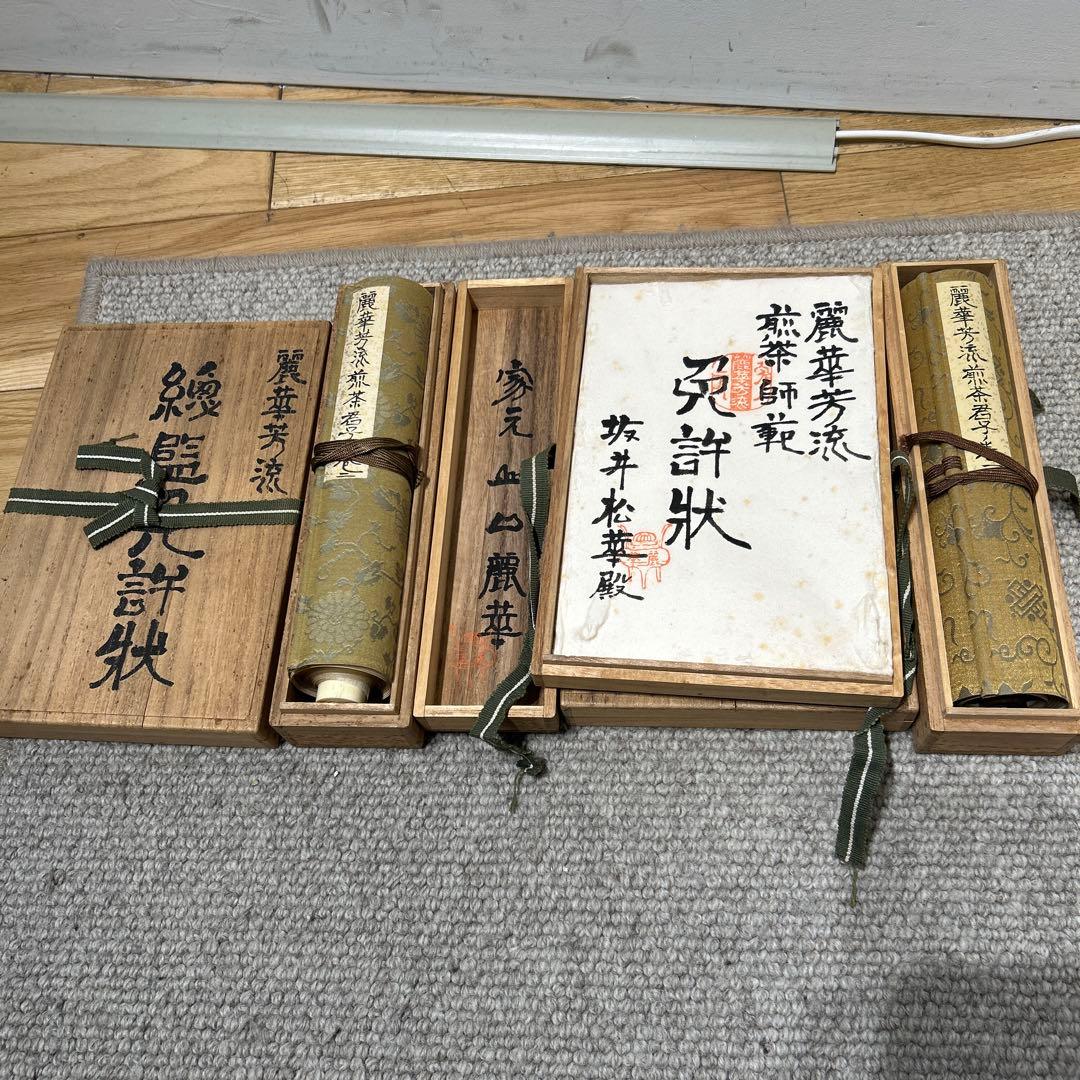 麗華芳流
總監免許狀
麗華芳流煎茶君子
家元
麗華
麗華芳流
煎茶師範
免許狀
坂井松華殿
麗華芳流
麗華芳流煎茶君子